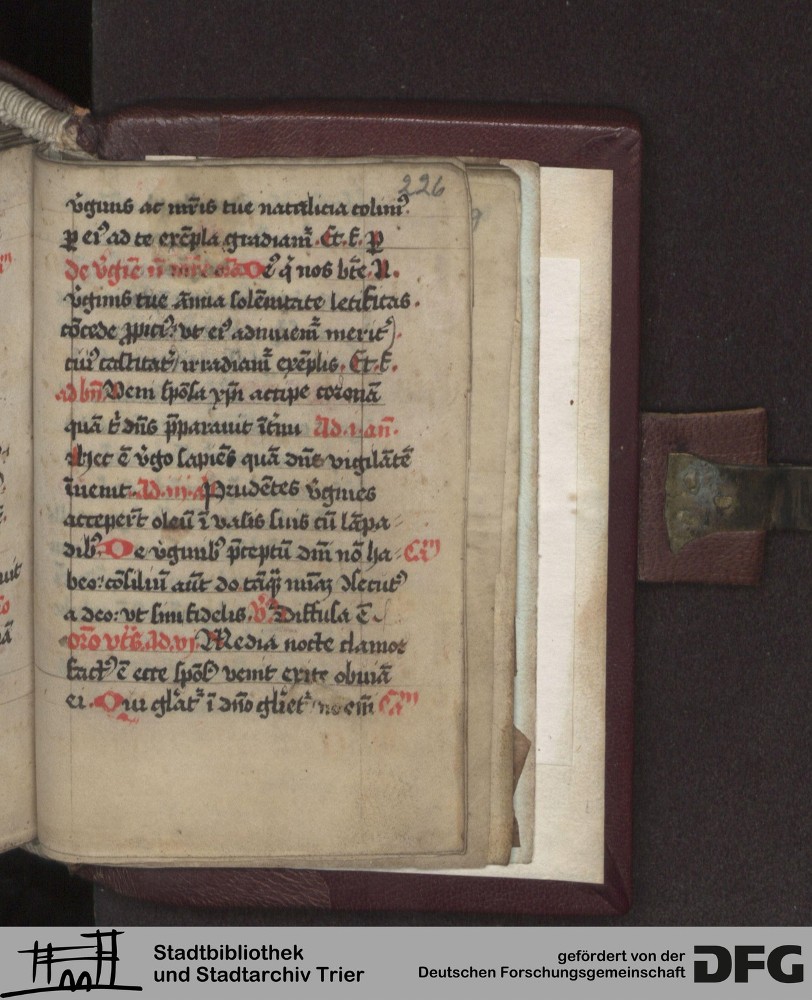 226
v̄ginis ac mr̄is tue natalicia colim⁹.
ꝑ ei⁹ ad te exēpla gradiam̄. Et. f. ꝑ
de v̄gīe n̄ mr̄e oīo De⁹ q̇ nos bt̄e. N.
v̄ginis tue ānua solēnitate letificas.
cōcede ꝓpiti⁹: vt ei⁹ adiuuem̄ meritꝭ.
cui⁹ castitatꝭ irradiam̄ exēplis. Et. f.
ad bn̄ Veni spōsa xp̄i accipe coronā
quā t͛ dn̄s p̄parauit ī et̄nū Ad .i. an̄.
Hec ē v̄go sapiēs quā dn̄s vigilātē
īuenit. Ad .iii. a Prudētes v̄gines
acceper̄t oleū ī vasis suis cū lāpa
dib⁹. De v̄ginib⁹ p̄ceptū dn̄i nō ha Ca᷑
beo: cōsiliū aūt do tāꝗ̄ mīaꝫ ꝯsecut⁹
a deo: vt sim fidelis. V᷑ Diffusa ē
oro vt s. Ad .vj. Media nocte clamor
fact⁹ ē ecce spōs⁹ venit exite obuiā
ei. Qui gl̄at᷑ ī dn̄o gl̄iet᷑ nō em̄ Ca᷑
Stadtbibliothek
und Stadtarchiv Trier
gefördert von der
Deutschen Forschungsgemeinschaft
DFG